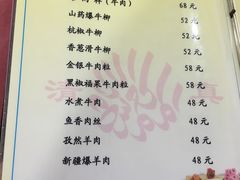 (牛肉) 68 元
山药爆牛柳 52 元
杭椒牛柳 52 元
香葱滑牛柳 52 元
金银牛肉粒 58 元
黑椒福菜牛肉粒 58 元
水煮牛肉 48 元
鱼香肉丝 48 元
孜然羊肉 48 元
新疆爆羊肉 48 元